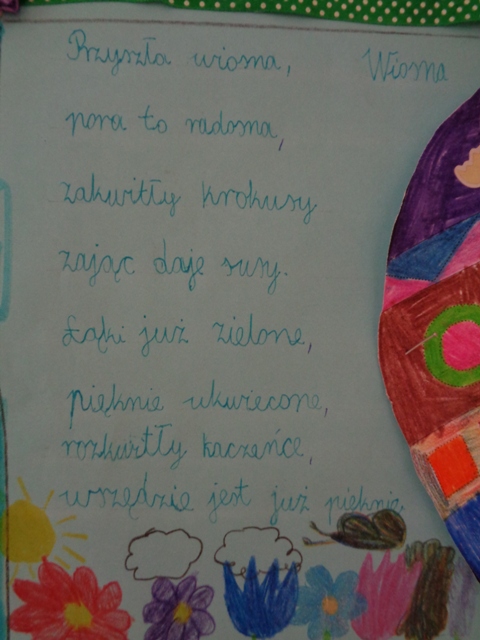 Wiosna
Przyszła wiosna,
pora to radosna,
zakwitły krokusy
zając daje susy.
Łąki już zielone,
pięknie ukwiecone,
rozkwitły kaczeńce,
wszędzie jest już pięknie.